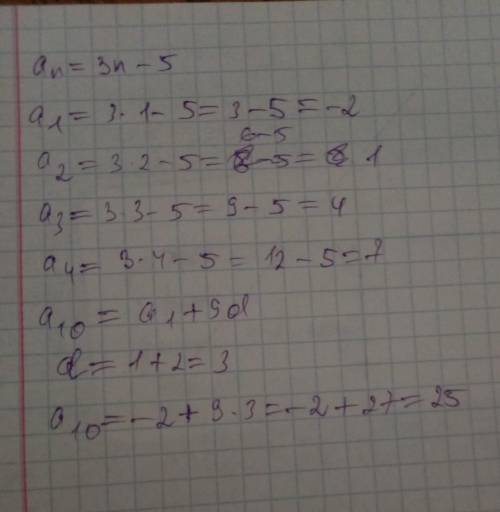 aₙ = 3n − 5
a₁ = 3·1 − 5 = 3 − 5 = −2
6−5
a₂ = 3·2 − 5 = 6 − 5 = 1
a₃ = 3·3 − 5 = 9 − 5 = 4
a₄ = 3·4 − 5 = 12 − 5 = 7
a₁₀ = a₁ + 9d
d = 1 + 2 = 3
a₁₀ = −2 + 9·3 = −2 + 27 = 25